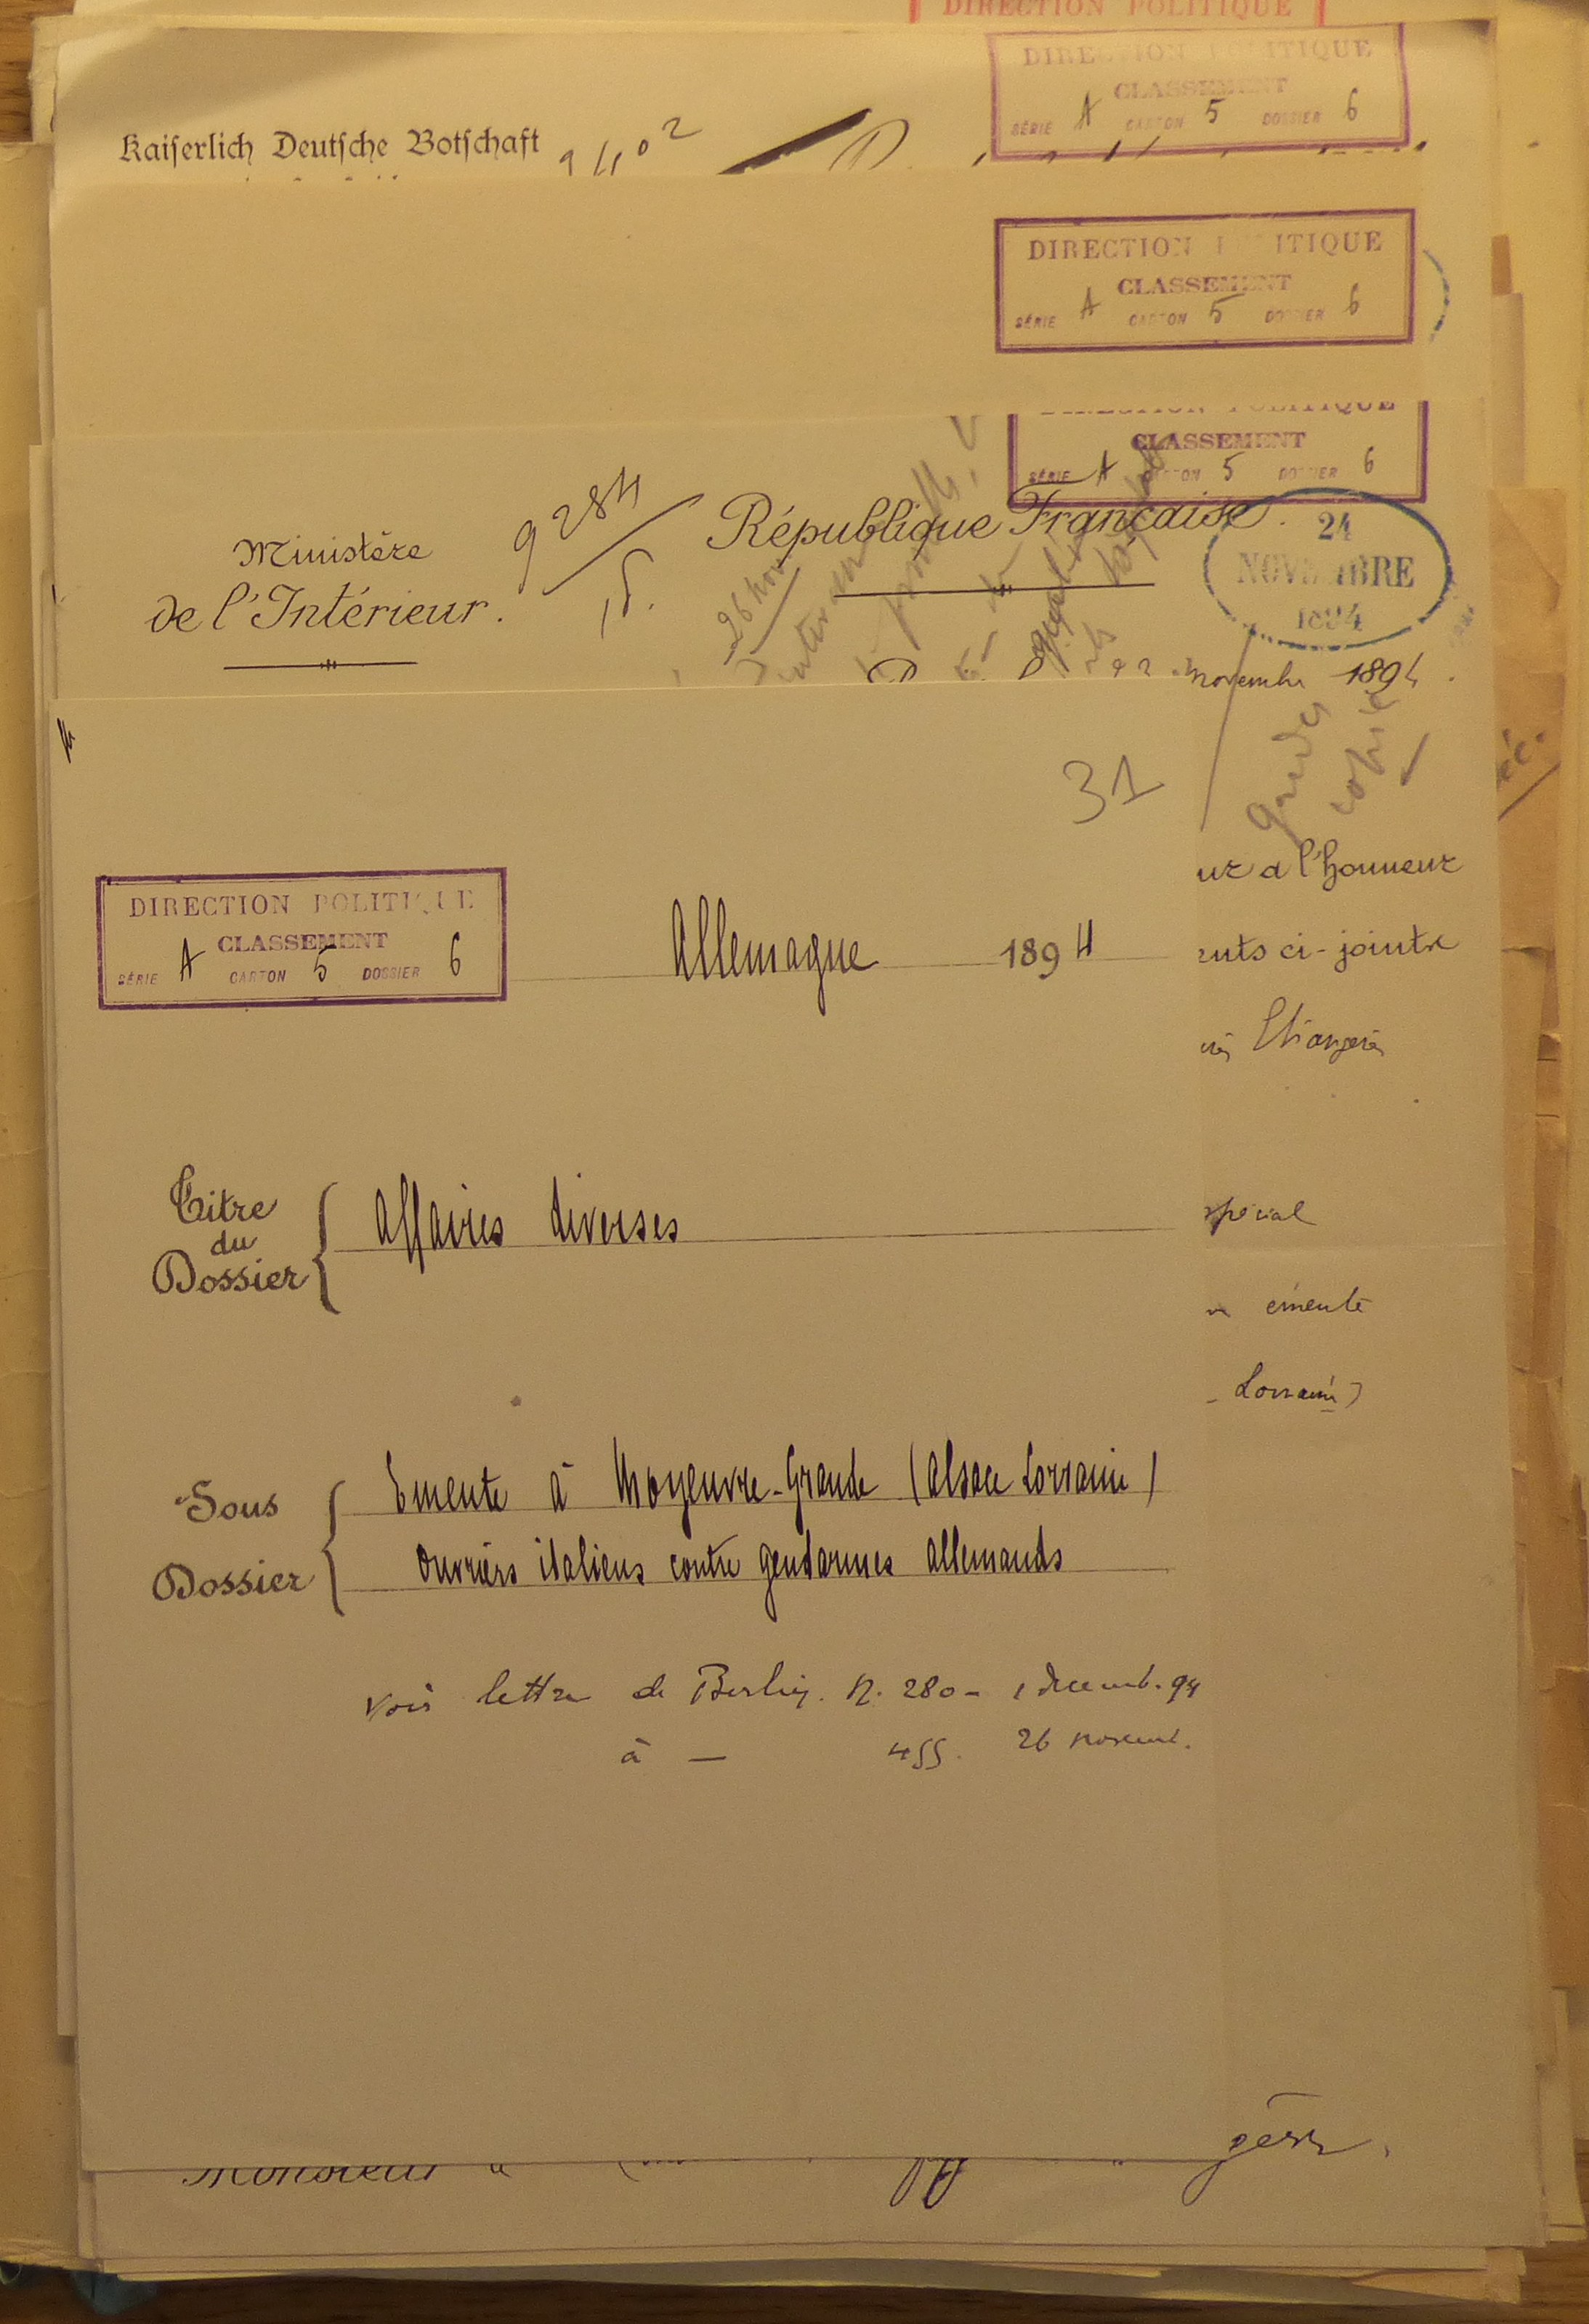 DIRECTION POLITIQUE
DIRECTION POLITIQUE
CLASSEMENT
SÉRIE A CARTON 5 DOSSIER 6
Kaiserlich Deutsche Botschaft
DIRECTION POLITIQUE
CLASSEMENT
SÉRIE A CARTON 5 DOSSIER 6
DIRECTION POLITIQUE
CLASSEMENT
SÉRIE A CARTON 5 DOSSIER 6
9284
République Française.
Ministère
de l'Intérieur.
24
NOVEMBRE
1894
26 nov
novembre 1894.
garder
copie
31
ur a l'honneur
DIRECTION POLITIQUE
CLASSEMENT
SÉRIE A CARTON 5 DOSSIER 6
Allemagne 1894
ents ci-jointe
Etrangères
Titre
du
Dossier
Affaires diverses
spécial
émeute
Lorraine)
Sous
Dossier
Emeute à Moyeuvre-Grande (Alsace Lorraine)
Ouvriers italiens contre gendarmes allemands
Voir lettre de Berlin. N. 280 - 1 décemb. 94
à — 455. 26 novemb.
Monsieur
gère